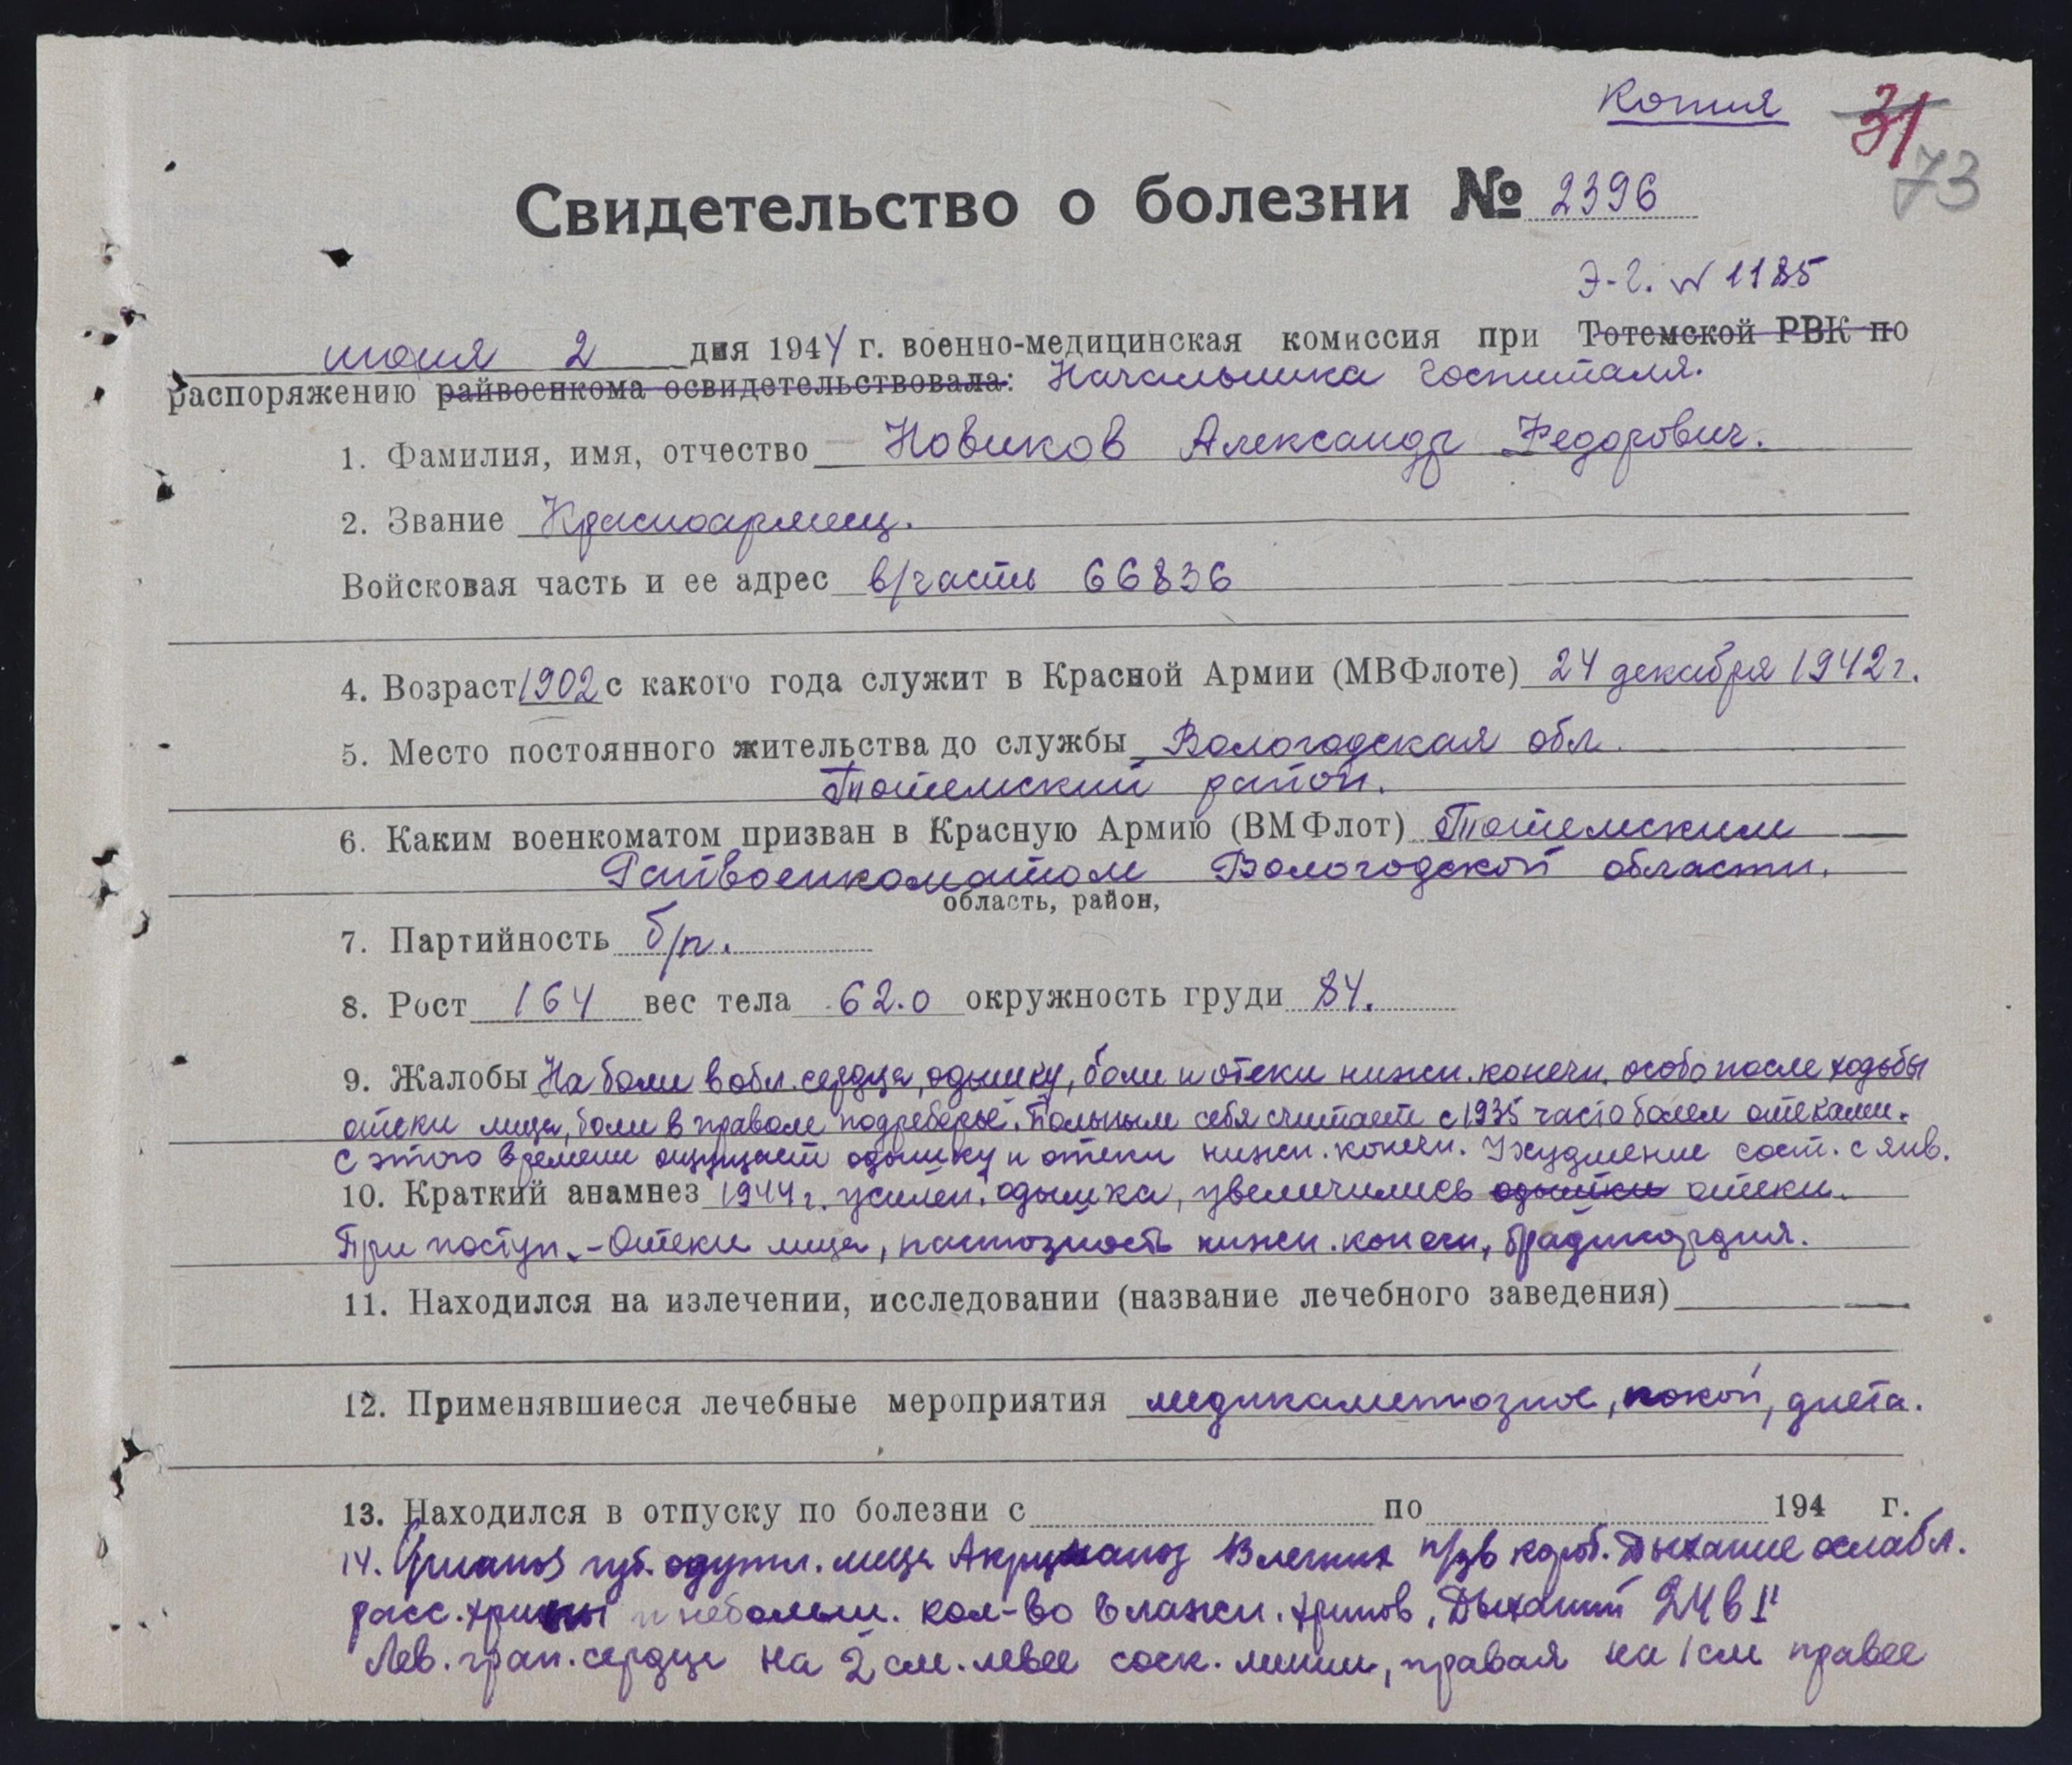 Копия
31
73
Свидетельство о болезни № 2396
Э-г. № 1185
июня 2 дня 1944 г. военно-медицинская комиссия при Тотемской РВК по
распоряжению райвоенкома освидетельствовала: Начальника госпиталя.
1. Фамилия, имя, отчество Новиков Александр Федорович.
2. Звание Красноармеец.
Войсковая часть и ее адрес в/часть 66836
4. Возраст 1902 с какого года служит в Красной Армии (МВФлоте) 24 декабря 1942 г.
5. Место постоянного жительства до службы Вологодская обл.
Тотемский район.
6. Каким военкоматом призван в Красную Армию (ВМФлот) Тотемским
Райвоенкоматом Вологодской области.
область, район,
7. Партийность б/п.
8. Рост 164 вес тела 62.0 окружность груди 84.
9. Жалобы На боли в обл. сердца, одышку, боли и отеки нижн. конечн. особо после ходьбы
отеки лица, боли в правом подреберье. Больным себя считает с 1935 часто болел отеками.
С этого времени ощущает одышку и отеки нижн. конечн. Ухудшение сост. с янв.
10. Краткий анамнез 1944 г. усилен. одышка, увеличились одышки отеки.
При поступ. - Отеки лица, пастозность нижн. конечн, брадикардия.
11. Находился на излечении, исследовании (название лечебного заведения)
12. Применявшиеся лечебные мероприятия медикаментозное, покой, диета.
13. Находился в отпуску по болезни с по 194 г.
14. Цианоз губ. одутл. лица Акроцианоз В легких п/зв короб. Дыхание ослабл.
расс. хрипы и небольш. кол-во влажн. хрипов, Дыханий 24 в I'
Лев. гран. сердца на 2 см. левее соск. линии, правая на 1 см правее